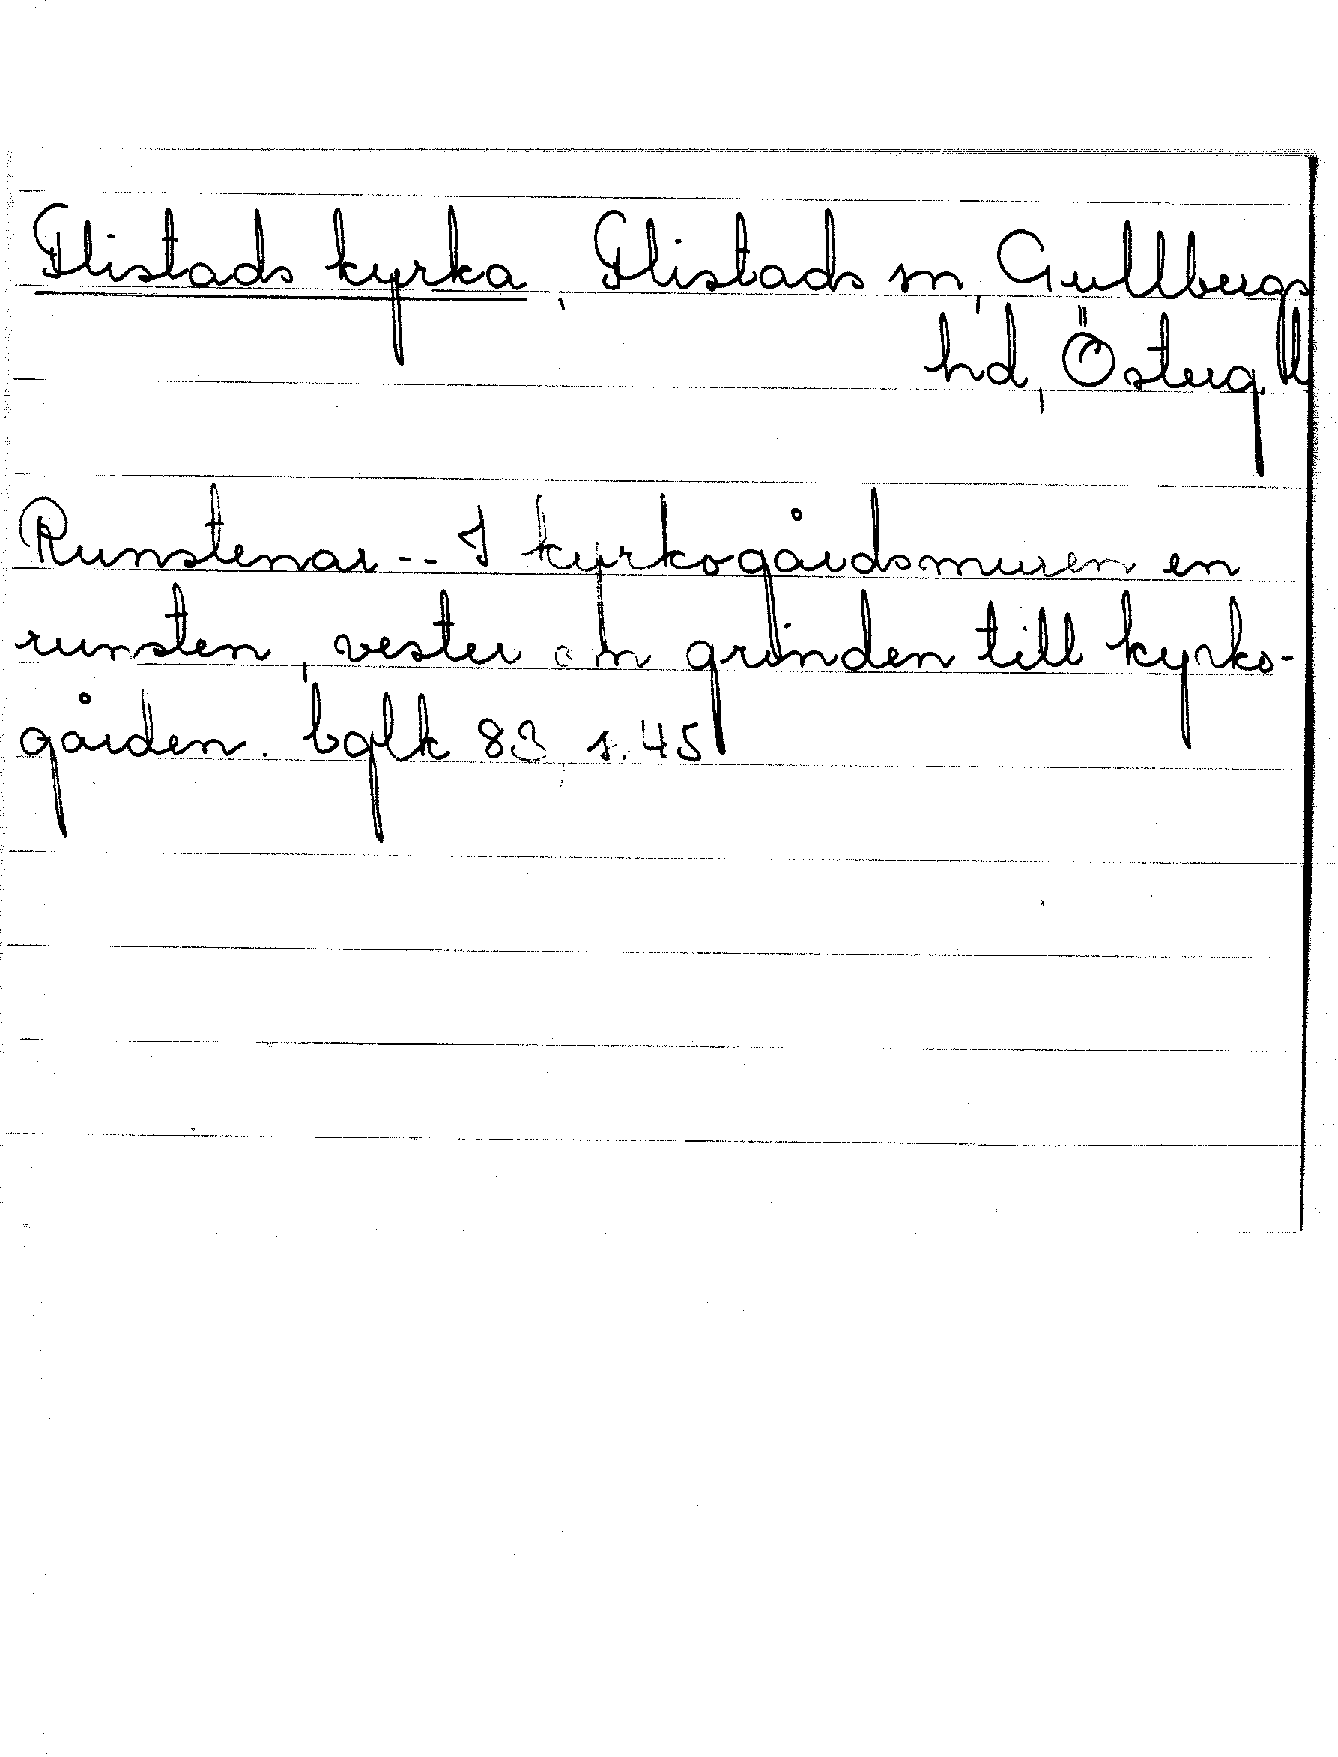 Flistads kyrka, Flistads sn, Gullbergs
hd, Österg ll
Runstenar -- I kyrkogårdsmuren en
runsten, vester om grinden till kyrko-
gården. bglk 83, s. 45